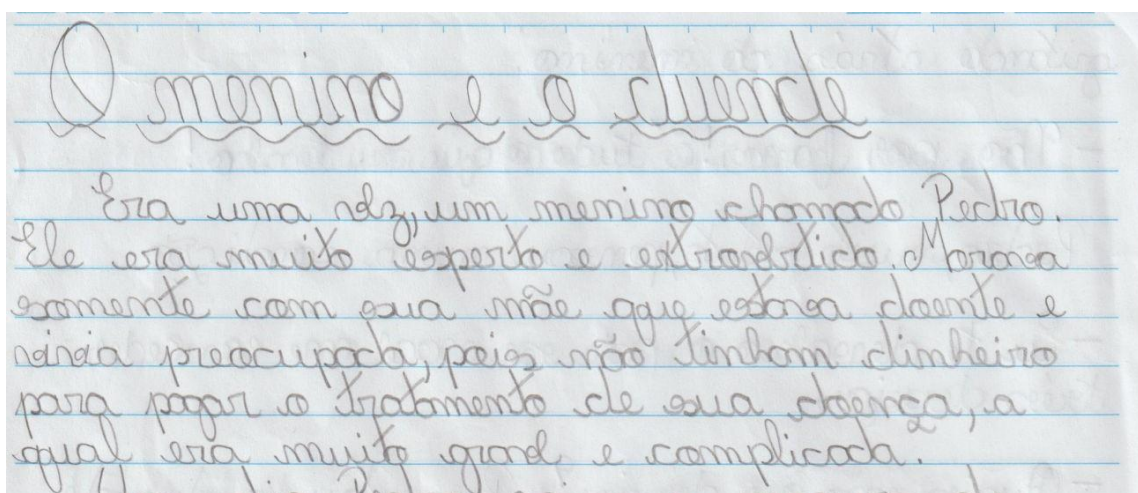 O menino e o duende
Era uma vez, um menino chamado Pedro.
Ele era muito esperto e extrovertido. Morava
somente com sua mãe que estava doente e
vivia preocupada, pois não tinham dinheiro
para pagar o tratamento de sua doença, a
qual era muito grave e complicada.